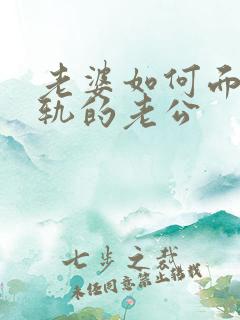 老婆如何而
轨的老公
七步之裁
未经同意禁止搭载